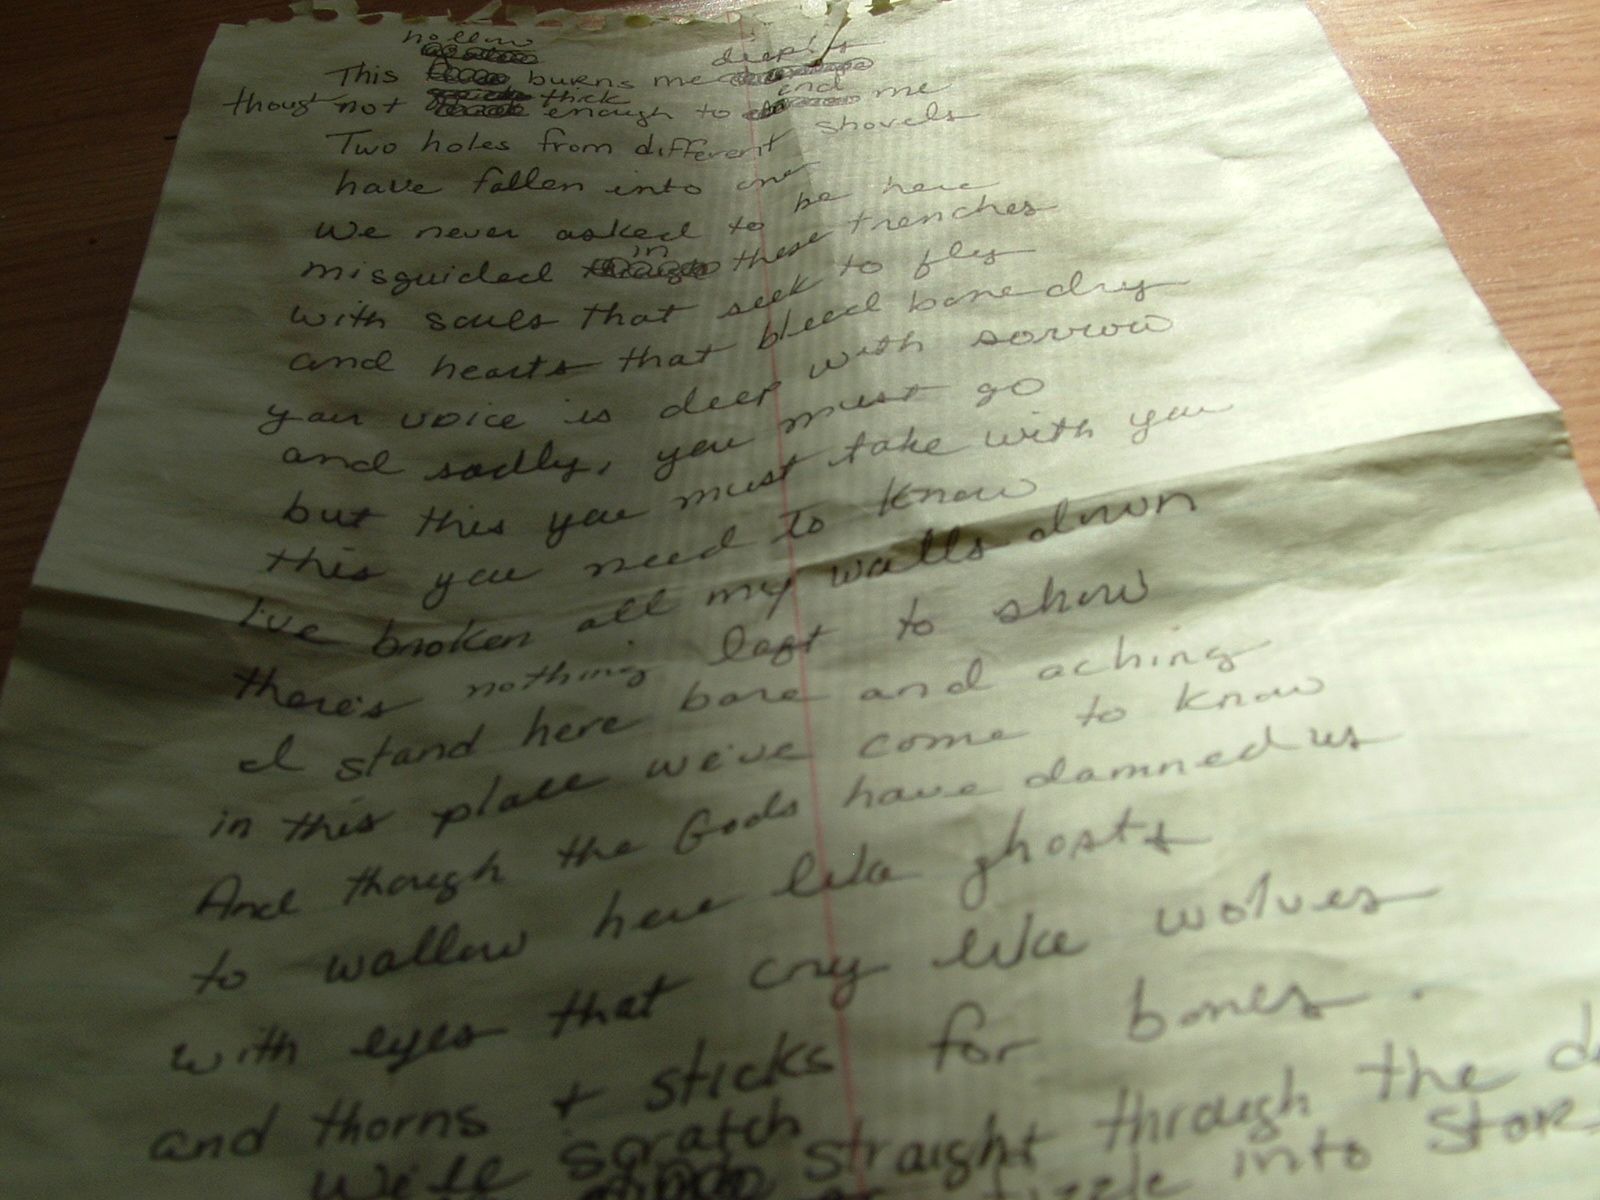 This hollow burns me deeply
though not thick enough to end me
Two holes from different shovels
have fallen into one
We never asked to be here
misguided in these trenches
with souls that seek to fly
and hearts that bleed bone dry
your voice is deep with sorrow
and sadly, you must go
but this you must take with you
this you need to know
I've broken all my walls down
there's nothing left to show
I stand here bare and aching
in this place we've come to know
And though the Gods have damned us
to wallow here like ghosts
with eyes that cry like wolves
and thorns + sticks for bones.
We'll scratch straight through the
into